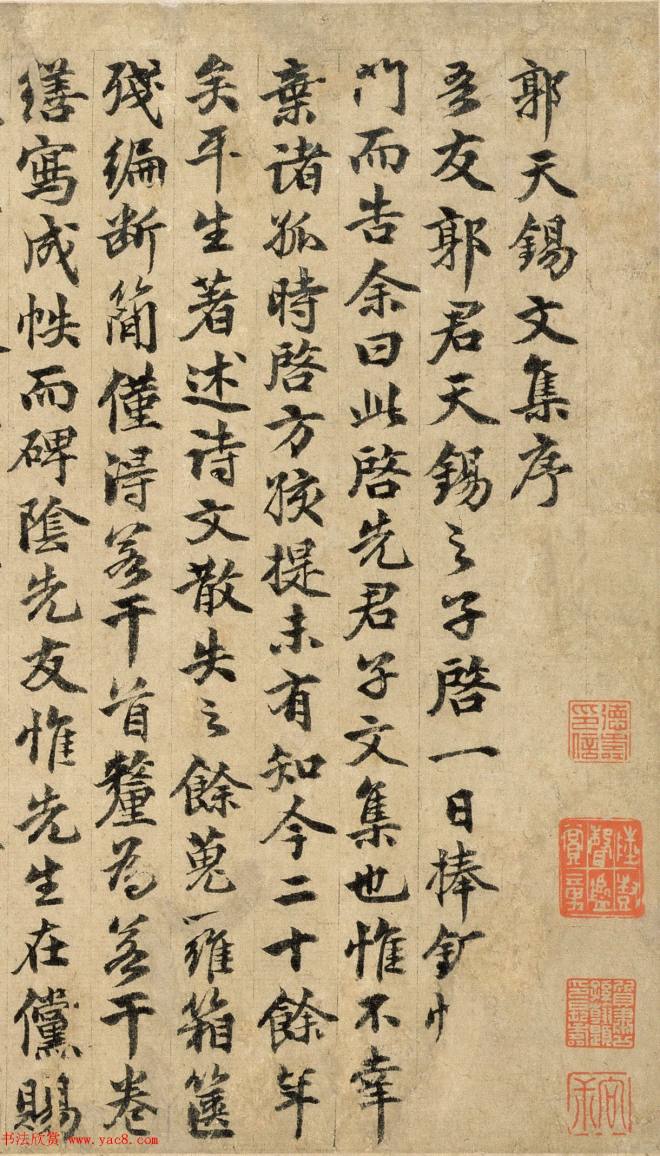 郭天錫文集序
吾友郭君天錫之子啓一日捧
門而告余曰此啓先君子文集也惟不幸
棄諸孤時啓方孩提未有知今二十餘年
矣平生著述诗文散失之餘蒐羅箱篋
殘編断簡僅得若干首釐為若干卷
繕寫成帙而碑陰先友惟先生在儻賜
陸樹聲鑑賞章
书法欣赏 www.yac8.com